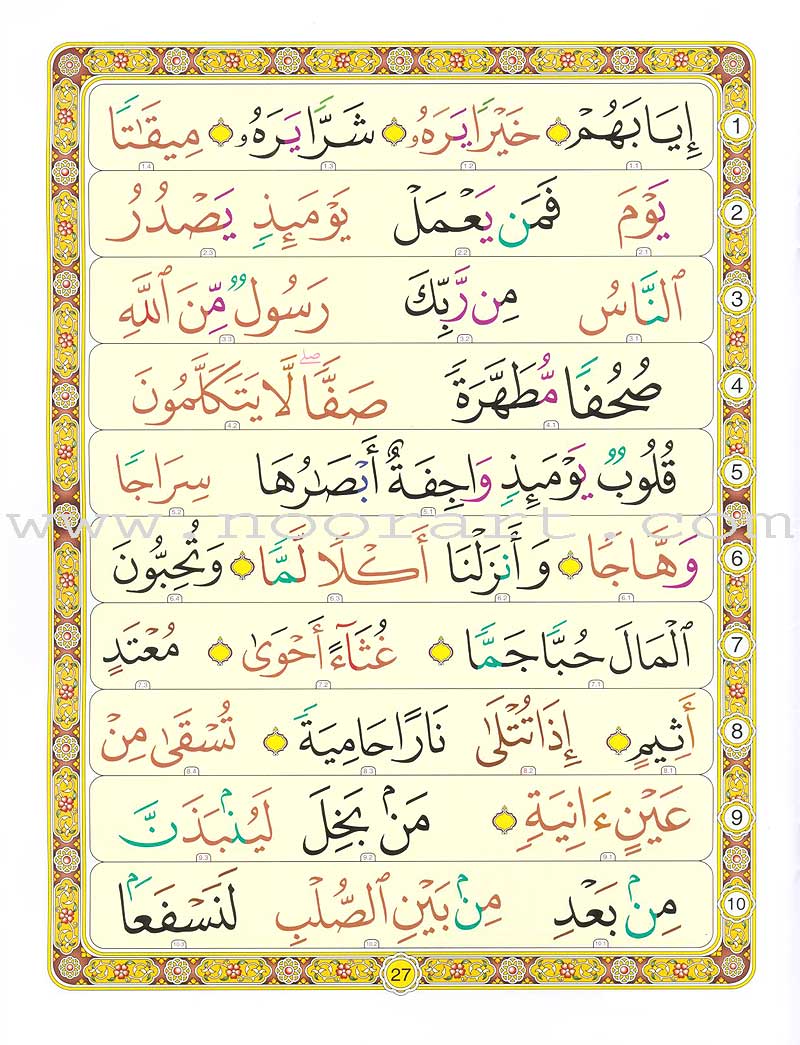 إِيَابَهُمْ خَيْرًا يَرَهُۥ شَرًّا يَرَهُۥ مِيقَٰتًا 1
1.1 1.2 1.3 1.4
يَوْمَ فَمَن يَعْمَلْ يَوْمَئِذٍ يَصْدُرُ 2
2.1 2.2 2.3
ٱلنَّاسُ مِن رَّبِّكَ رَسُولٌ مِّنَ ٱللَّهِ 3
3.1 3.2 3.3
صُحُفًا مُّطَهَّرَةً صَفًّا ۖ لَّا يَتَكَلَّمُونَ 4
4.1 4.2
قُلُوبٌ يَوْمَئِذٍ وَاجِفَةٌ أَبْصَارُهَا سِرَاجًا 5
5.1 5.2
www.noorart.com
وَهَّاجًا وَأَنزَلْنَا أَكْلًا لَّمًّا وَتُحِبُّونَ 6
6.1 6.2 6.3 6.4
ٱلْمَالَ حُبًّا جَمًّا غُثَآءً أَحْوَىٰ مُعْتَدٍ 7
7.1 7.2 7.3
أَثِيمٍ إِذَا تُتْلَىٰ نَارًا حَامِيَةً تُسْقَىٰ مِنْ 8
8.1 8.2 8.3 8.4
عَيْنٍ ءَانِيَةٍ مَنۢ بَخِلَ لَيُنۢبَذَنَّ 9
9.1 9.2 9.3
مِنۢ بَعْدِ مِنۢ بَيْنِ ٱلصُّلْبِ لَنَسْفَعًۢا 10
10.1 10.2 10.3
27